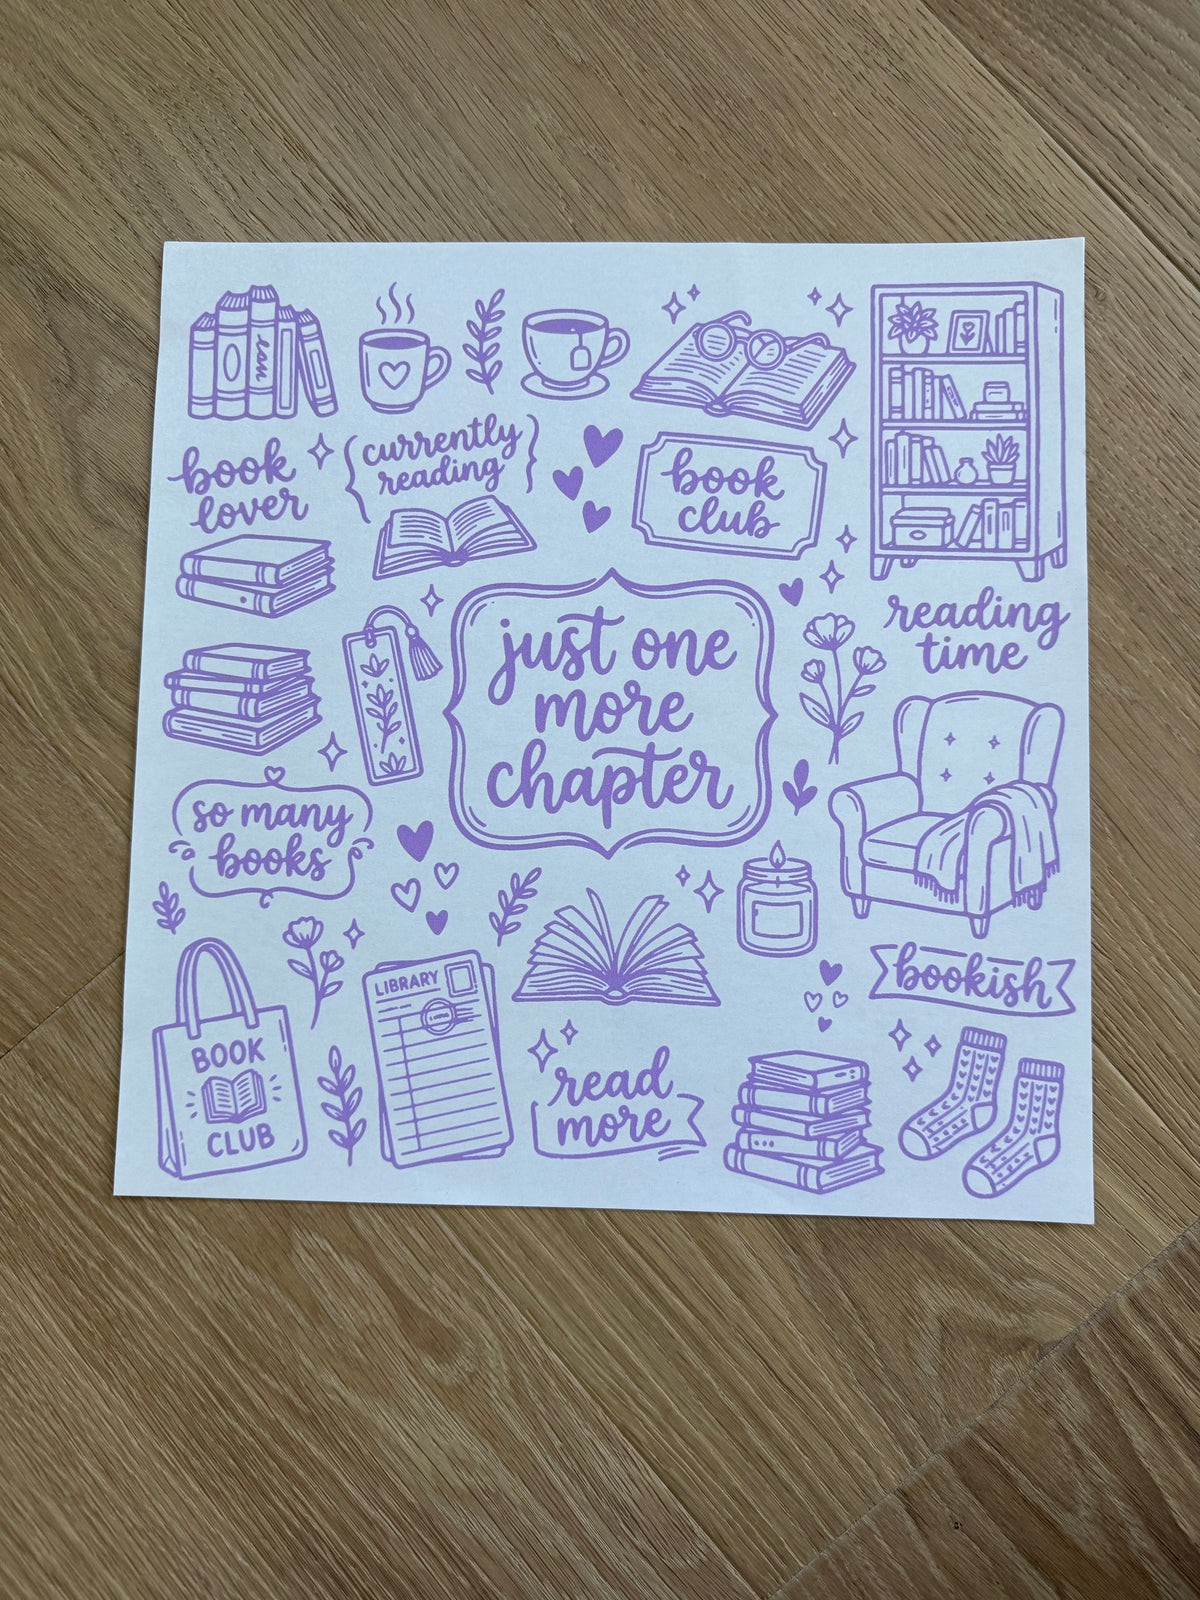 book
lover
currently
reading
book
club
reading
time
just one
more
chapter
so many
books
bookish
LIBRARY
BOOK
CLUB
read
more